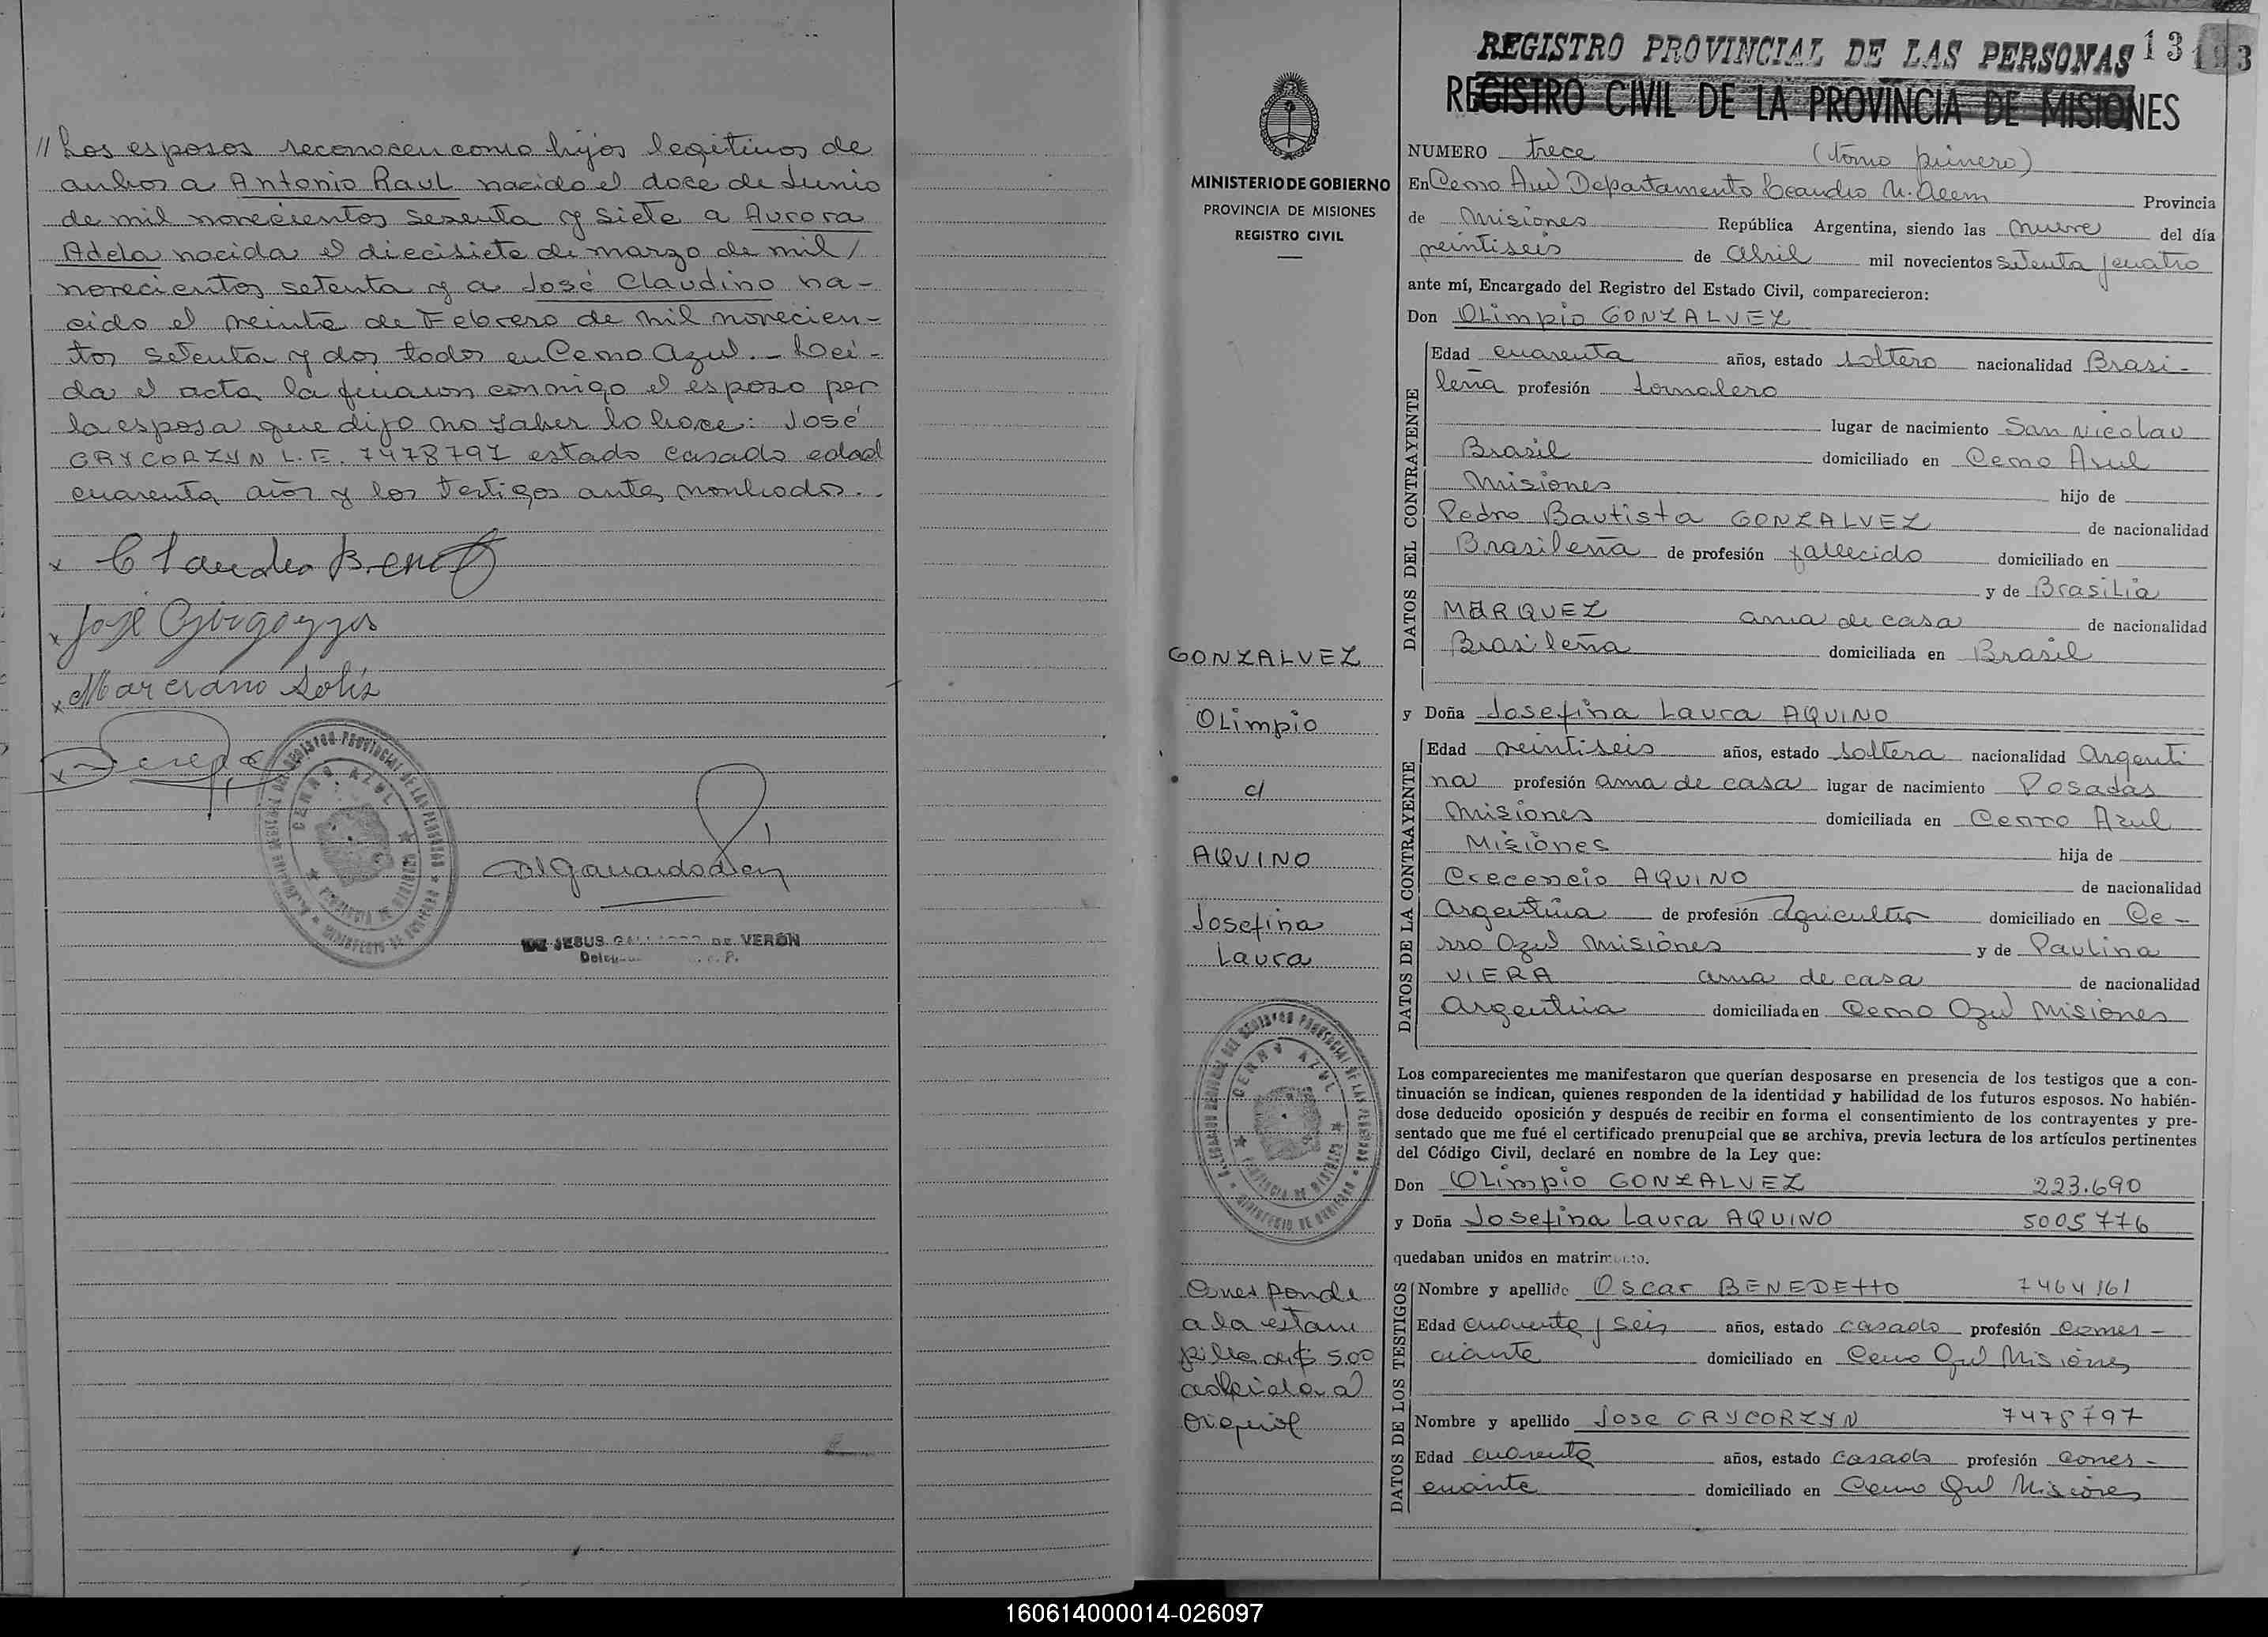 // Los esposos reconocen como hijos legitimos de
ambos a Antonio Raul nacido el doce de Junio
de mil novecientos sesenta y siete a Aurora
Adela nacida el diecisiete de marzo de mil /
novecientos setenta y a José Claudino na-
cido el veinte de Febrero de mil novecien-
tos setenta y dos todos en Cerro Azul.- Leí-
da el acta la firman conmigo el esposo por
la esposa que dijo no saber lo hace: José
GRYCORZYN L.E. 7478797 estado casado edad
cuarenta años y los testigos antes nombrados..
x
x
x Marciano Solis
x
REGISTRO PROVINCIAL DE LAS PERSONAS
CERRO AZUL
PROVINCIA DE MISIONES
JESUS DE VERÓN
REGISTRO PROVINCIAL DE LAS PERSONAS 13
REGISTRO CIVIL DE LA PROVINCIA DE MISIONES
MINISTERIO DE GOBIERNO
PROVINCIA DE MISIONES
REGISTRO CIVIL
GONZALVEZ
Olimpio
c/
AQUINO
Josefina
Laura
REGISTRO PROVINCIAL DE LAS PERSONAS
CERRO AZUL
PROVINCIA DE MISIONES
Corresponde
a la estam
pilla de $ 5.00
adherida al
original
NUMERO trece (tomo primero)
En Cerro Azul Departamento Leandro N. Alem Provincia
de Misiones República Argentina, siendo las nueve del día
veintiseis de Abril mil novecientos setenta y cuatro
ante mí, Encargado del Registro del Estado Civil, comparecieron:
Don Olimpio GONZALVEZ
DATOS DEL CONTRAYENTE
Edad cuarenta años, estado soltero nacionalidad Brasi-
leña profesión Jornalero
lugar de nacimiento San Nicolau
Brasil domiciliado en Cerro Azul
Misiones hijo de
Pedro Bautista GONZALVEZ de nacionalidad
Brasileña de profesión fallecido domiciliado en
y de Brasilia
MARQUEZ ama de casa de nacionalidad
Brasileña domiciliada en Brasil
y Doña Josefina Laura AQUINO
DATOS DE LA CONTRAYENTE
Edad veintiseis años, estado soltera nacionalidad Argenti
na profesión ama de casa lugar de nacimiento Posadas
Misiones domiciliada en Cerro Azul
Misiones hija de
Crecencio AQUINO de nacionalidad
Argentina de profesión agricultor domiciliado en Ce-
rro Azul Misiones y de Paulina
VIERA ama de casa de nacionalidad
Argentina domiciliada en Cerro Azul Misiones
Los comparecientes me manifestaron que querían desposarse en presencia de los testigos que a con-
tinuación se indican, quienes responden de la identidad y habilidad de los futuros esposos. No habién-
dose deducido oposición y después de recibir en forma el consentimiento de los contrayentes y pre-
sentado que me fué el certificado prenupcial que se archiva, previa lectura de los artículos pertinentes
del Código Civil, declaré en nombre de la Ley que:
Don Olimpio GONZALVEZ 223.690
y Doña Josefina Laura AQUINO 5005776
quedaban unidos en matrimonio.
DATOS DE LOS TESTIGOS
Nombre y apellido Oscar BENEDEttO 7464161
Edad cuarenta y seis años, estado casado profesión comer-
ciante domiciliado en Cerro Azul Misiones
Nombre y apellido Jose GRYCORZYN 7478797
Edad cuarenta años, estado casado profesión comer-
ciante domiciliado en Cerro Azul Misiones
160614000014-026097